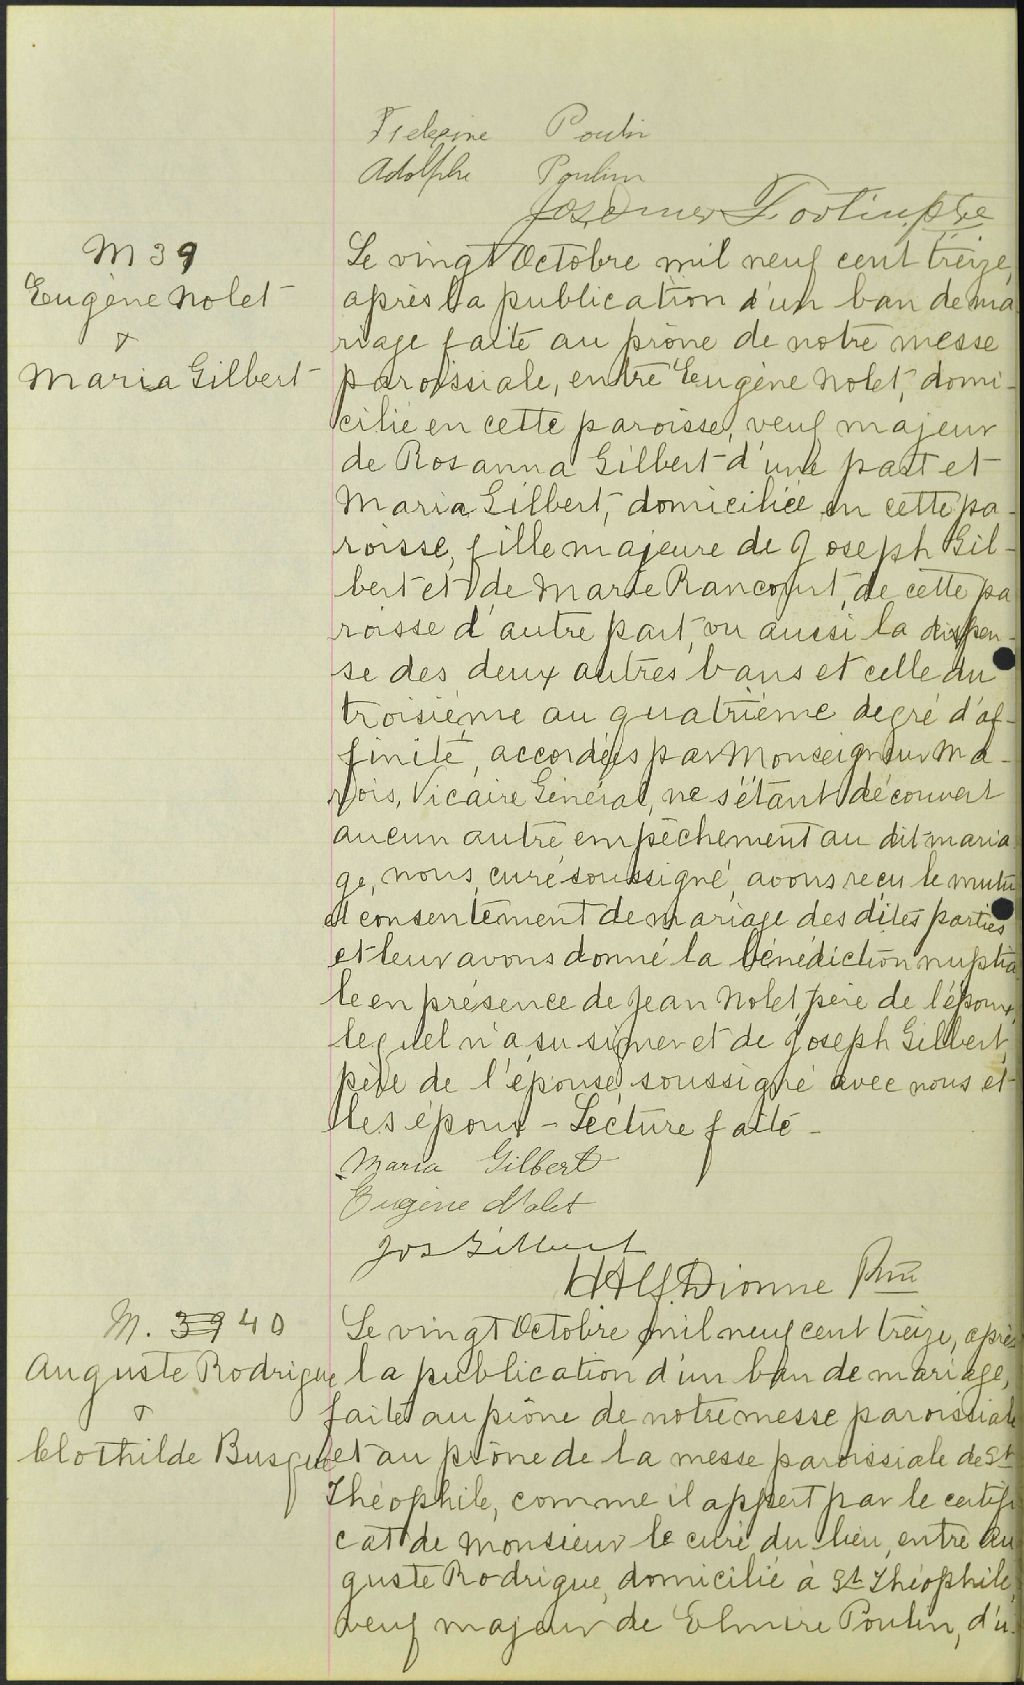 Poulin
Adolphe Poulin
M 39
Eugène Nolet
&
Maria Gilbert
Le vingt Octobre mil neuf cent treize,
après la publication d'un ban de ma
riage faite au prône de notre messe
paroissiale, entre Eugène Nolet, domi-
cilié en cette paroisse, veuf majeur
de Rosanna Gilbert d'une part et
Maria Gilbert, domiciliée en cette pa-
roisse, fille majeure de Joseph Gil-
bert et de Marie Rancourt, de cette pa
roisse d'autre part, vu aussi la dispen-
se des deux autres bans et celle du
troisième au quatrième degré d'af-
finité, accordées par Monseigneur Ma-
rois, Vicaire Général, ne s'étant découvert
aucun autre empêchement au dit maria
ge, nous, curé soussigné, avons reçu le mutu
el consentement de mariage des dites parties
et leur avons donné la bénédiction nuptia
le en présence de Jean Nolet, père de l'époux,
lequel n'a su signer et de Joseph Gilbert,
père de l'épouse, soussigné avec nous et
les époux - Lecture faite -
Maria Gilbert
Eugène Nolet
Jos Gilbert
H Alf. Dionne Ptre
M. 39 40
Auguste Rodrigue
&
Clothilde Busque
Le vingt Octobre mil neuf cent treize, après
la publication d'un ban de mariage,
faite au prône de notre messe paroissiale
et au prône de la messe paroissiale de St
Théophile, comme il appert par le certifi
cat de Monsieur le curé du lieu, entre Au
guste Rodrigue, domicilié à St Théophile,
veuf majeur de Elmire Poulin, d'u-